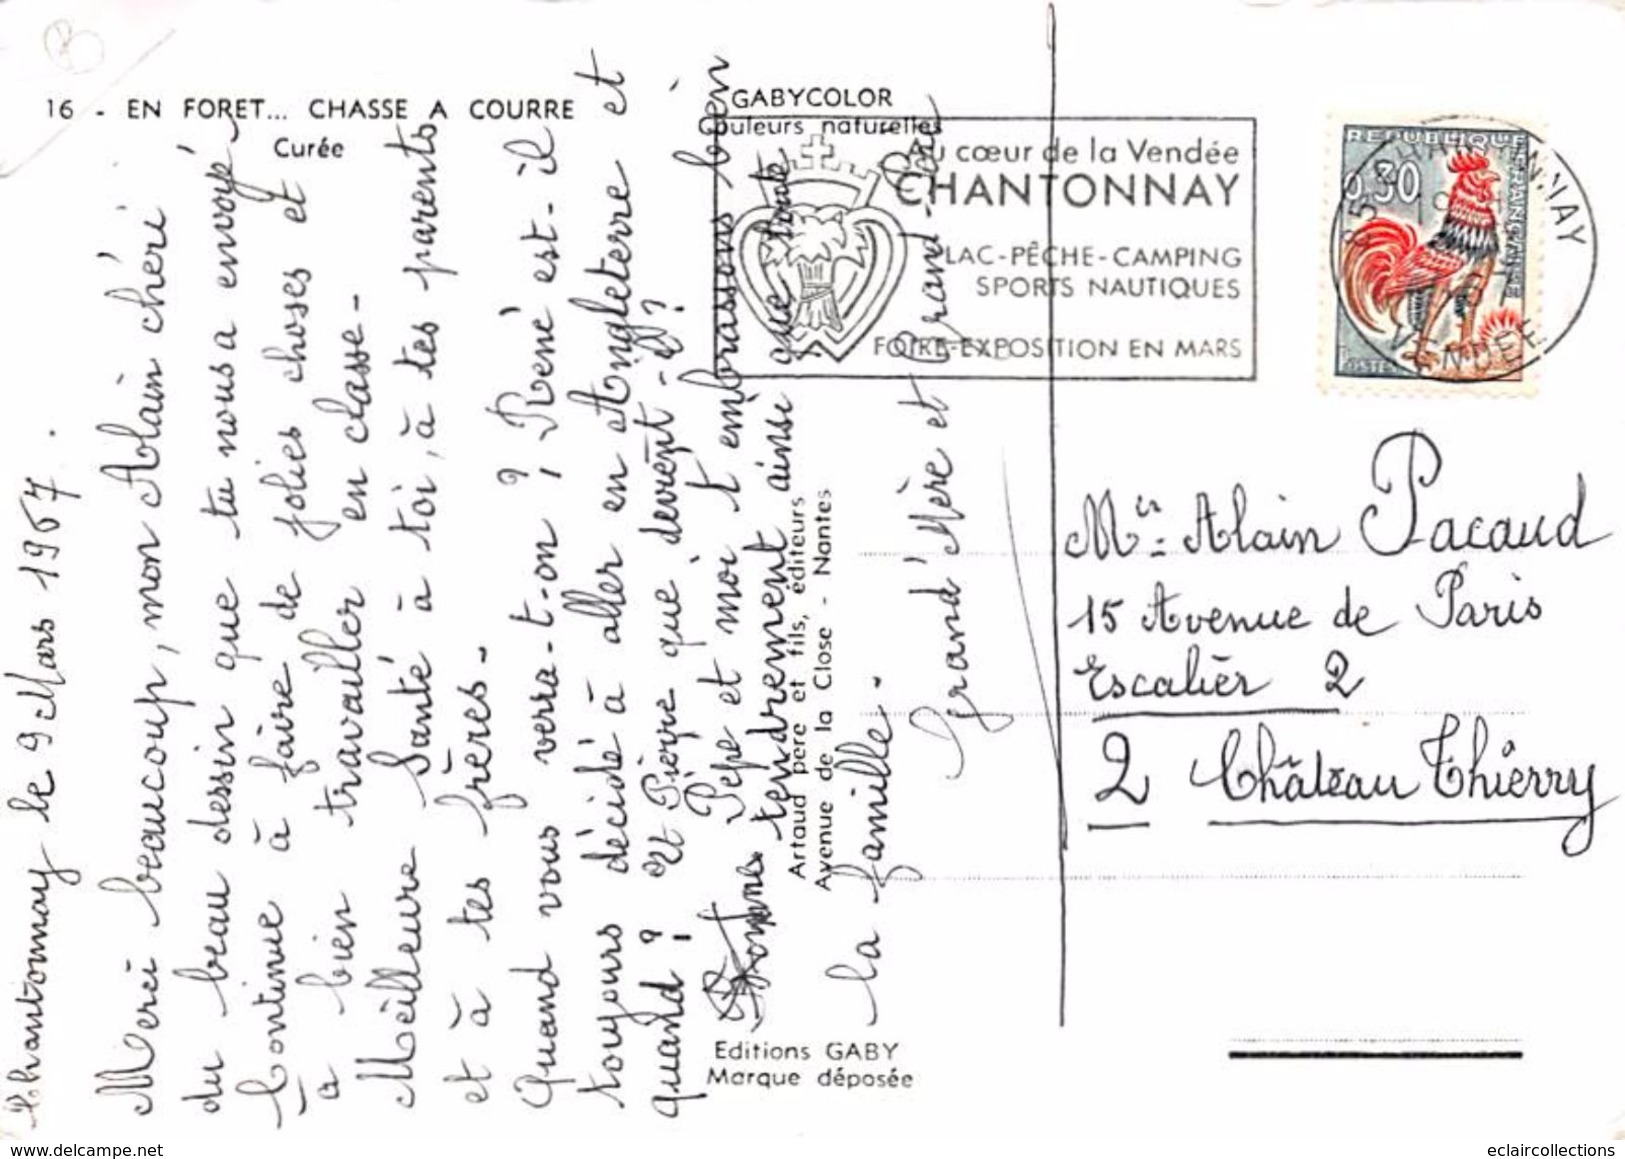 16 - EN FORET... CHASSE A COURRE
Curée
GABYCOLOR
Couleurs naturelles
Au cœur de la Vendée
CHANTONNAY
LAC-PÊCHE-CAMPING
SPORTS NAUTIQUES
FOIRE-EXPOSITION EN MARS
REPUBLIQUE FRANÇAISE
0,30
POSTES
VENDEE
Chantonnay le 9 Mars 1967.
Merci beaucoup, mon Alain chéri
du beau dessin que tu nous a envoyé
Continue à faire de jolies choses et
à bien travailler en classe -
Meilleure Santé à toi, à tes parents
et à tes frères -
Quand vous verra-t-on ? René est-il
toujours décidé à aller en Angleterre et
quand ? Et Pierre que devient-il ?
Pépé et moi t'embrassons bien
tendrement ainsi que toute
la famille -
Grand'Mère et Grand-Père
Artaud père et fils, éditeurs
Avenue de la Close - Nantes
Editions GABY
Marque déposée
Mr Alain Pacaud
15 Avenue de Paris
Escalier 2
2 Château Thierry
eclaircollections